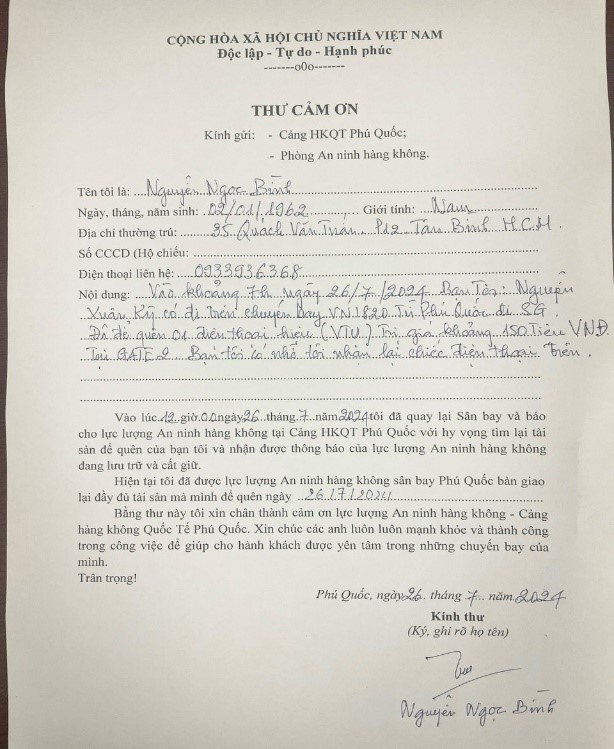 CỘNG HÒA XÃ HỘI CHỦ NGHĨA VIỆT NAM
Độc lập - Tự do - Hạnh phúc
-------o0o-------
THƯ CẢM ƠN
Kính gửi: - Cảng HKQT Phú Quốc;
- Phòng An ninh hàng không.
Tên tôi là: Nguyễn Ngọc Bình
Ngày, tháng, năm sinh: 02/01/1962 Giới tính: Nam
Địa chỉ thường trú: 35 Quách Văn Tuấn P12 Tân Bình H.C.M.
Số CCCD (Hộ chiếu:
Điện thoại liên hệ: 0933936368
Nội dung: Vào khoảng 7h ngày 26/7/2024 Bạn Tôi: Nguyễn
Xuân Kỳ có đi trên chuyến bay VN1820 Từ Phú Quốc đi SG.
Đã để quên 01 điện thoại hiệu (VTU) Trị giá khoảng 150 Triệu VNĐ
Tại GATE 2. Bạn tôi có nhờ tôi nhận lại chiếc điện thoại trên.
Vào lúc 12 giờ 00 ngày 26 tháng 7 năm 2024 tôi đã quay lại Sân bay và báo
cho lực lượng An ninh hàng không tại Cảng HKQT Phú Quốc với hy vọng tìm lại tài
sản để quên của bạn tôi và nhận được thông báo của lực lượng An ninh hàng không
đang lưu trữ và cất giữ.
Hiện tại tôi đã được lực lượng An ninh hàng không sân bay Phú Quốc bàn giao
lại đầy đủ tài sản mà mình để quên ngày 26/7/2024
Bằng thư này tôi xin chân thành cảm ơn lực lượng An ninh hàng không - Cảng
hàng không Quốc Tế Phú Quốc. Xin chúc các anh luôn luôn mạnh khỏe và thành công
trong công việc để giúp cho hành khách được yên tâm trong những chuyến bay của
mình.
Trân trọng!
Phú Quốc, ngày 26 tháng 7 năm 2024
Kính thư
(Ký, ghi rõ họ tên)
Nguyễn Ngọc Bình